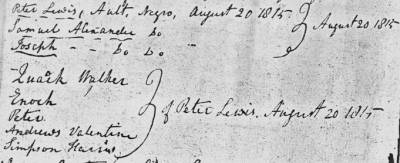 Peter Lewis, Adult, Negro, August 20 1815
Samuel Alexander Do.
Joseph - - Do Do.
August 20 1815
Quack Walker
Enoch
Peter
Andrews Valentine
Simpson Harris
of Peter Lewis. August 20 1815